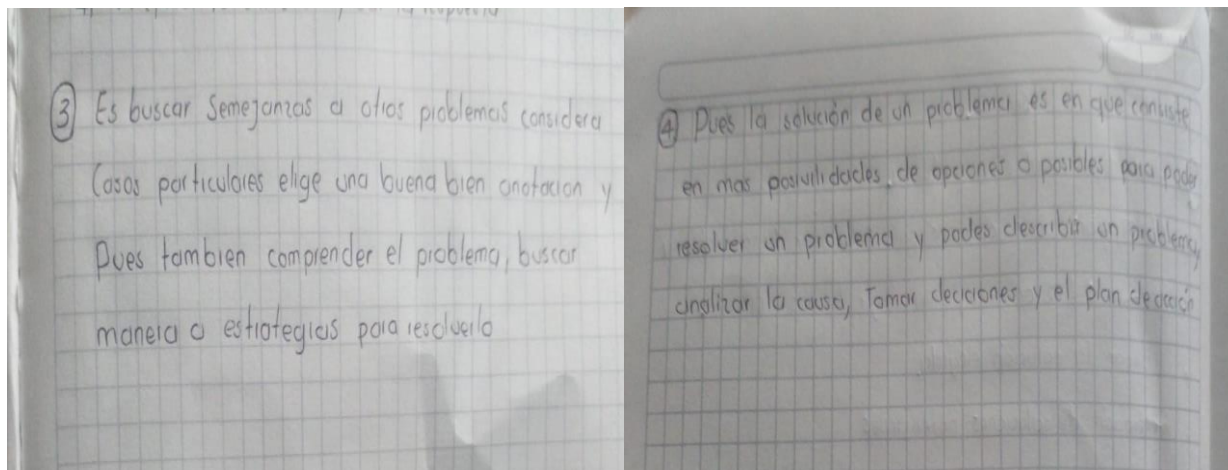 ③ Es buscar Semejanzas a otros problemas considera
Casos particulares elige una buena bien anotacion y
Pues tambien comprender el problema, buscar
manera o estrategias para resolverlo
④ Pues la solución de un problema es en que consiste
en mas posivilidades, de opciones o posibles para poder
resolver un problema y podes describir un problema,
analizar la causa, Tomar deciciones y el plan de acción